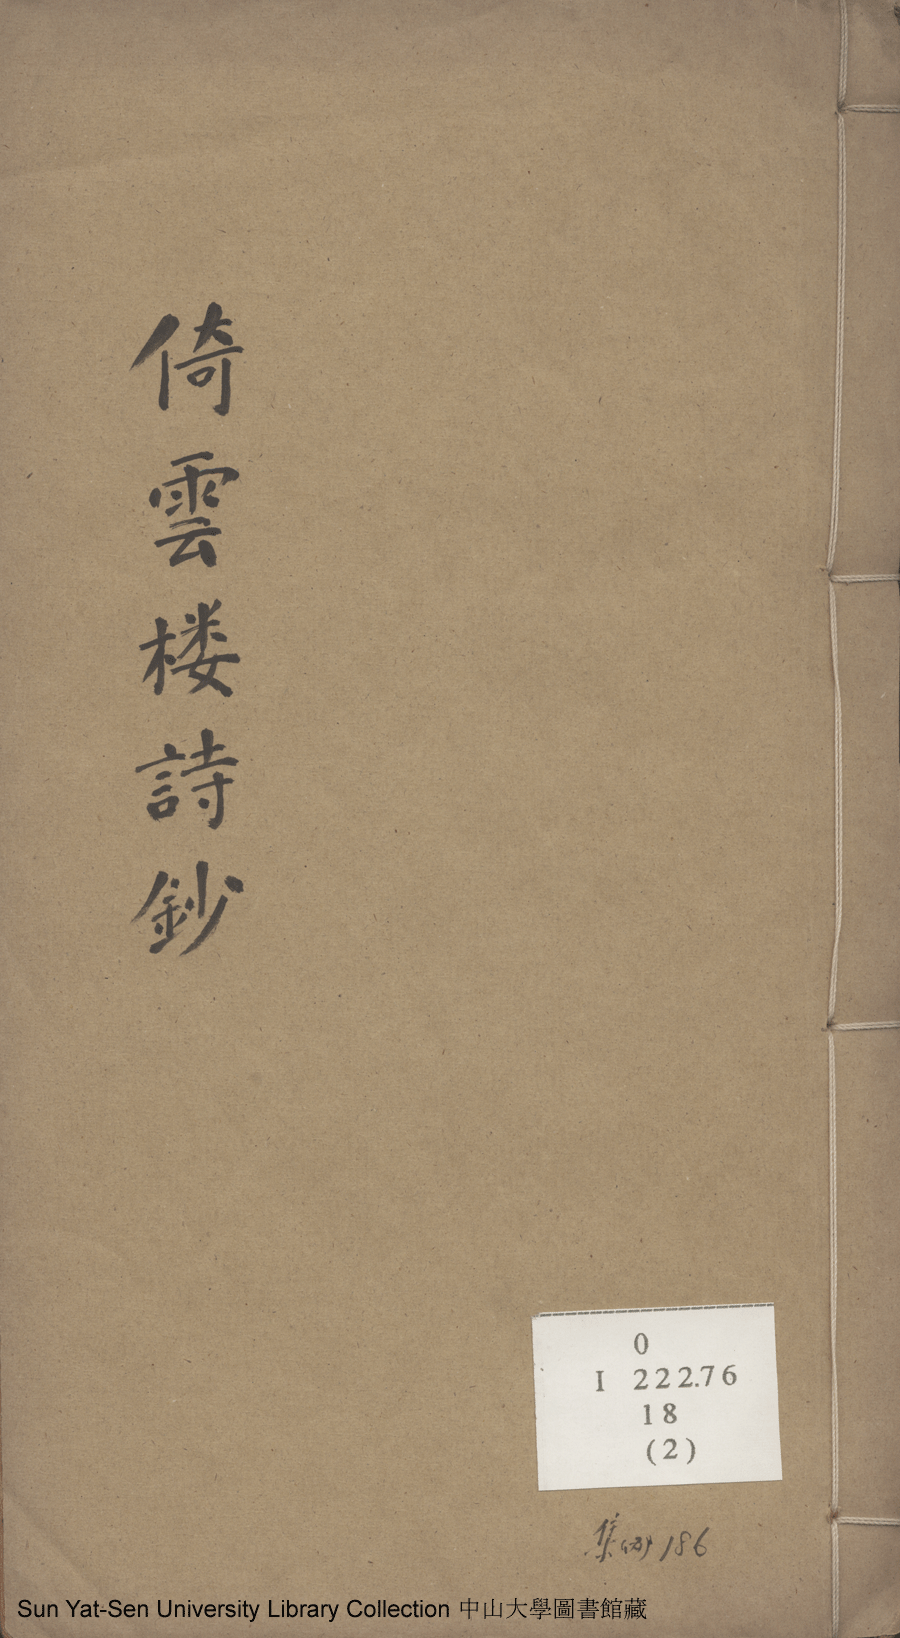 倚雲楼詩鈔
0
I 222.76
18
(2)
集 186
Sun Yat-Sen University Library Collection 中山大學圖書館藏